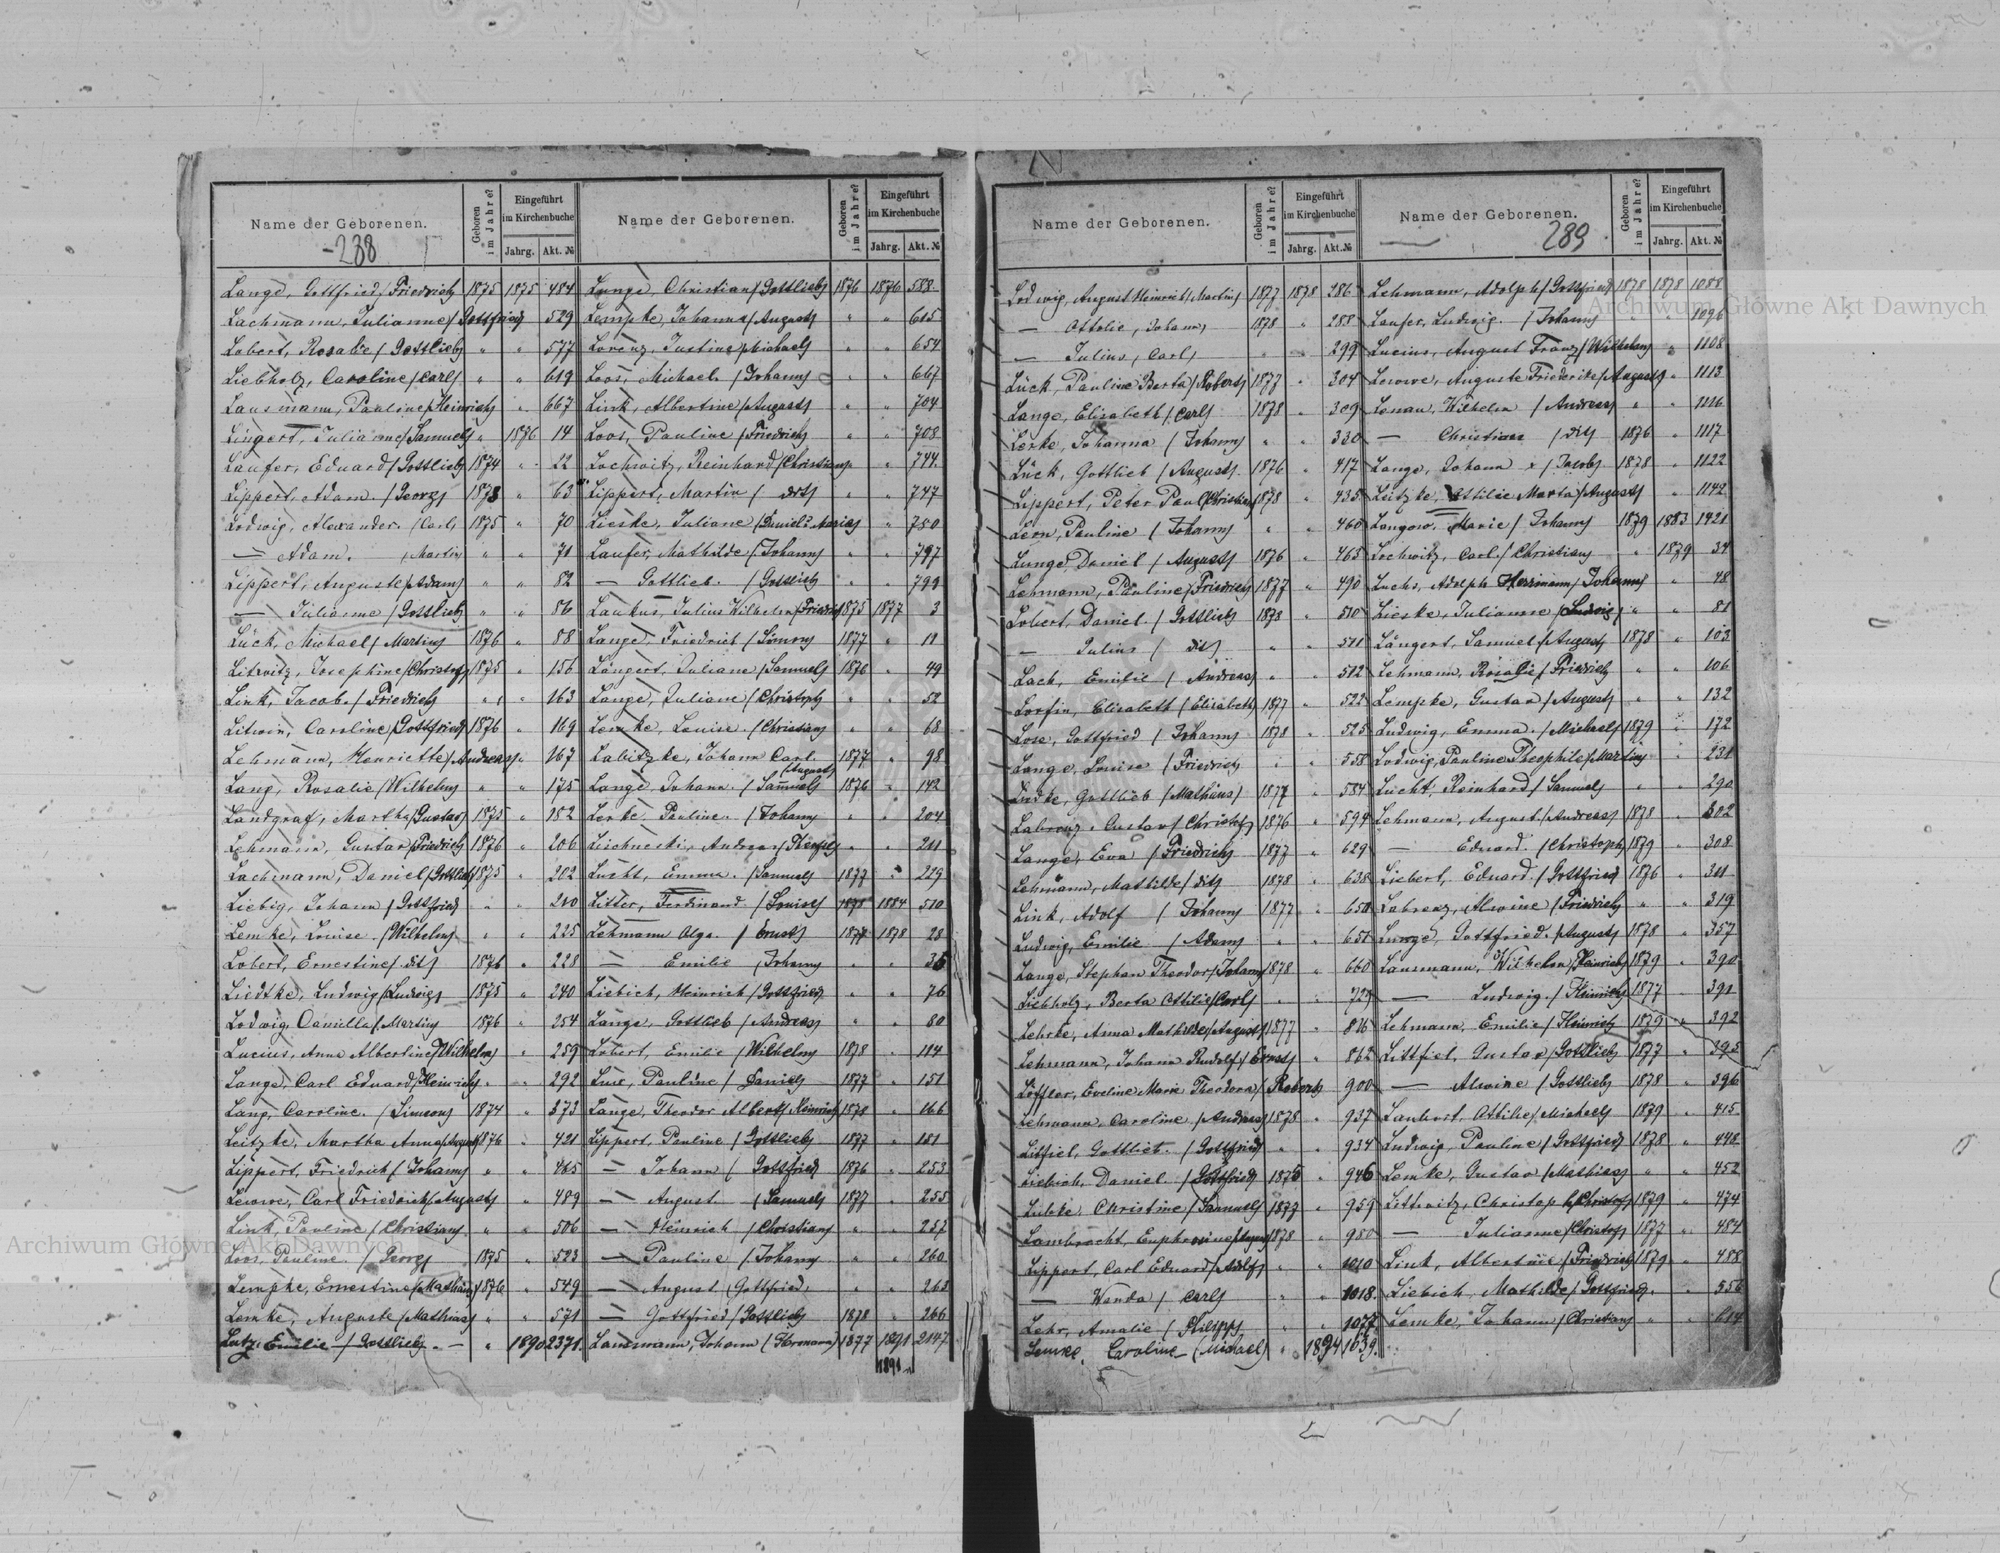 Name der Geborenen.
Geboren im Jahre?
Eingeführt im Kirchenbuche
Jahrg. Akt. №
-288
Lange, Gottfried /Friedrich/ 1875 1875 484
Lachmann, Julianne /Gottfried/ 529
Lobert, Rosalie /Gottlieb/ " " 577
Liebholz, Caroline /Carl/ " " 619
Lausmann, Pauline /Heinrich/ " 667
Lingert, Julianne /Samuel/ " 1876 14
Laufer, Eduard /Gottlieb/ 1874 " 22
Lippert, Adam. /Georg/ 1873 " 63
Lodwig, Alexander. /Carl/ 1875 " 70
— Adam. /Martin/ " " 71
Lippert, Auguste /Adam/ " " 82
— Julianne /Gottlieb/ " " 86
Lück, Michael /Martin/ 1876 " 88
Litwitz, Josephine /Christoph/ 1875 " 156
Link, Jacob. /Friedrich/ " " 163
Litwin, Caroline /Gottfried/ 1876 " 169
Lehmann, Henriette /Andreas/ " 167
Lang, Rosalie /Wilhelm/ " " 175
Landgraf, Martha /Gustav/ 1875 " 182
Lehmann, Gustav /Friedrich/ 1876 " 206
Lachmann, Daniel /Gottlieb/ 1875 " 202
Liebig, Johann /Gottfried/ " " 210
Lemke, Louise. /Wilhelm/ " " 225
Lobert, Ernestine /dit/ 1876 " 228
Liedtke, Ludwig /Ludwig/ 1875 " 240
Lodwig, Camilla /Martin/ 1876 " 254
Lucius, Anna Albertine /Wilhelm/ " 259
Lange, Carl Eduard /Heinrich/ " " 292
Lang, Caroline. /Simson/ 1874 " 373
Leitzke, Martha Anna /August/ 1876 " 421
Lippert, Friedrich /Johann/ " " 465
Lewwe, Carl Friedrich /August/ " 489
Link, Pauline /Christian/ " " 506
Loos, Pauline. /Georg/ 1875 " 523
Lempke, Ernestine /Mathias/ 1876 " 549
Lemke, Auguste /Mathias/ " " 571
Lutz, Emilie /Gottlieb/ — " 1890 2371.
Name der Geborenen.
Geboren im Jahre?
Eingeführt im Kirchenbuche
Jahrg. Akt. №
Lange, Christian /Gottlieb/ 1876 1876 588
Lempke, Johanna /August/ " " 615
Lorenz, Justine /Michael/ " " 654
Loos, Michael. /Johann/ " " 667
Link, Albertine /August/ " " 704
Loos, Pauline /Friedrich/ " " 708
Lochwitz, Reinhard /Christian/ " 744
Lippert, Martin / dit/ " " 747
Lieske, Juliane /Daniel/ " 750
Laufer, Mathilde /Johann/ " " 797
— Gottlieb. /Gottlieb/ " " 799
Laukus, Julius Wilhelm /Friedrich/ 1875 1877 3
Lange, Friedrich /Simon/ 1877 " 11
Längert, Juliane /Samuel/ 1876 " 49
Lange, Juliane /Christoph/ " " 52
Lemke, Louise. /Christian/ " " 68
Labitzke, Johann Carl. /August/ 1877 " 98
Lange, Johann. /Samuel/ 1876 " 142
Lerke, Pauline. /Johann/ " " 204
Andreas " " 211
Lucht, Emma. /Samuel/ 1877 " 229
Litter, Ferdinand /Louise/ 1884 510
Lehmann Olga. /Ernst/ 1877 1878 28
— Emilie /Johann/ " " 35
Liebich, Heinrich /Gottfried/ " " 76
Lange, Gottlieb /Andreas/ " " 80
Lobert, Emilie /Wilhelm/ 1878 " 114
Pauline /Daniel/ 1877 " 151
Lange, Theodor Albert /Heinrich/ 1878 " 166
Lippert, Pauline /Gottlieb/ 1877 " 181
— Johann /Gottfried/ 1876 " 253
— August /Samuel/ 1877 " 255
— Heinrich /Christian/ " " 257
— Pauline /Johann/ " " 260
— August /Gottfried/ " " 263
— Gottfried /Gottlieb/ 1878 " 266
Lausmann, Johann (Hermann) 1877 1891 2147
1891
Name der Geborenen.
Geboren im Jahre?
Eingeführt im Kirchenbuche
Jahrg. Akt. №
Lodwig, August Heinrich /Martin/ 1877 1878 286
— Ottolie, /Johann/ 1878 " 288
— Julius, /Carl/ " " 299
Lück, Pauline Berta /Robert/ 1877 " 304
Lange, Elisabeth /Carl/ 1878 " 309
Lerke, Johanna /Johann/ " " 330
Lück, Gottlieb /August/ 1876 " 417
Lippert, Peter Paul /Christian/ 1878 " 435
Leon, Pauline /Johann/ " " 460
Lange, Daniel /August/ 1876 " 465
Lehmann, Pauline /Friedrich/ 1877 " 490
Lobert, Daniel /Gottlieb/ 1878 " 510
— Julius / dit/ " " 511
Lach, Emilie /Andreas/ " " 512
Elisabeth /Elisabeth/ 1877 " 522
Lose, Gottfried /Johann/ 1878 " 525
Lange, Louise /Friedrich/ " " 558
Lüdke, Gottlieb /Mathäus/ 1877 " 584
Labrenz, Gustav /Christof/ 1876 " 594
Lange, Eva /Friedrich/ 1877 " 629
Lehmann, Mathilde /dit/ 1878 " 638
Link, Adolf /Johann/ 1877 " 650
Ludwig, Emilie /Adam/ " " 651
Lange, Stephan Theodor /Johann/ 1878 " 660
Liebholz, Berta Ottilie /Carl/ " " 728
Lehrke, Anna Mathilde /August/ 1877 " 816
Lehmann, Johann Rudolf /Ernst/ " 862
Löffler, Eveline Marie Theodora /Robert/ 900
Lehmann, Caroline /Andreas/ 1878 " 937
Litfiel, Gottlieb. /Gottfried/ " " 934
Liebich, Daniel /Gottfried/ 1875 " 946
Lübke, Christine /Samuel/ 1877 " 959
Lambrecht, Euphrosine /August/ 1878 " 980
Lippert, Carl Eduard /Adolf/ " " 1010
— Wanda /Carl/ " " 1018.
Lehr, Amalie /Philipp/ " " 1077
Lemke, Caroline (Michael) " 1894 1639.
Name der Geborenen.
Geboren im Jahre?
Eingeführt im Kirchenbuche
Jahrg. Akt. №
289
Lehmann, Adolph /Gottfried/ 1878 1878 1088
Laufer, Ludwig. /Johann/ " " 1096
Lucius, August Franz /Wilhelm/ " 1108
Lewwe, Auguste Friederike /August/ " 1113
Lenau, Wilhelm /Andreas/ " " 1116
— Christian /dit/ 1876 " 1117
Lange, Johann /Jacob/ 1878 " 1122
Leitzke, Ottilie Marta /August/ " 1142
Langow, Marie /Johann/ 1879 1883 1421
Lochwitz, Carl. /Christian/ " 1879 34
Luchs, Adolph Herrmann /Johann/ " 48
Lieske, Julianne /Ludwig/ " " 81
Längert, Samuel /August/ 1878 " 103
Lehmann, Rosalie /Friedrich/ " " 106
Lempke, Gustav /August/ " " 132
Ludwig, Emma. /Michael/ 1879 " 172
Lodwig, Pauline Theophile /Martin/ " 231
Lucht, Reinhard /Samuel/ " " 290
Lehmann, August. /Andreas/ 1878 " 302
— Eduard. /Christoph/ 1879 " 308
Liebert, Eduard. /Gottfried/ 1876 " 311
Labrenz, Alwine /Friedrich/ " " 319
Lange, Gottfried. /August/ 1878 " 357
Lausmann, Wilhelm /Heinrich/ 1879 " 390
— Ludwig. /Heinrich/ 1877 " 391
Lehmann, Emilie /Heinrich/ 1879 " 392
Littfiel, Gustav /Gottlieb/ 1877 " 395
— Alwine /Gottlieb/ 1878 " 396
Ottilie /Michael/ 1879 " 415
Ludwig, Pauline /Gottfried/ 1878 " 448
Lemke, Gustav /Mathias/ " " 452
Littwitz, Christoph /Christof/ 1879 " 474
— Julianne /Christof/ 1877 " 484
Link, Albertine /Friedrich/ 1879 " 488
Liebich, Mathilde /Gottfried/ " " 556
Lemke, Johann /Christian/ " " 614
Archiwum Główne Akt Dawnych
Archiwum Główne Akt Dawnych